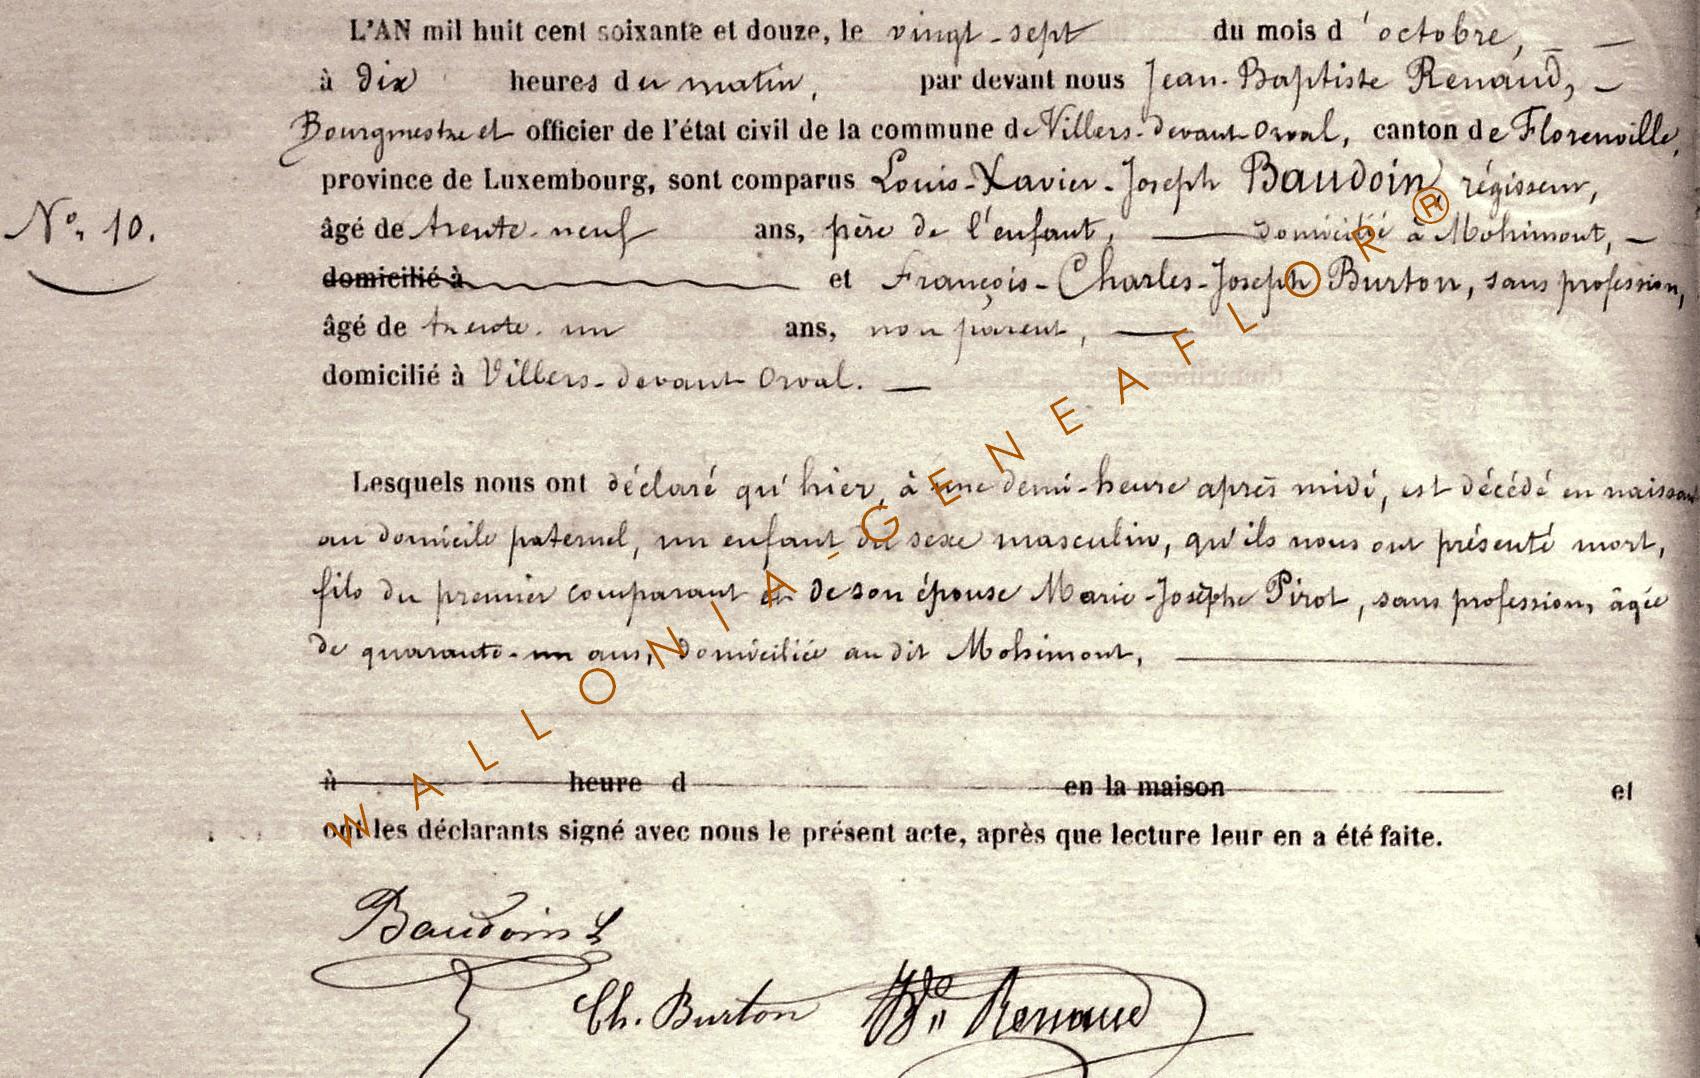 L'AN mil huit cent soixante et douze, le vingt-sept du mois d'octobre,
à dix heures du matin, par devant nous Jean-Baptiste Renaud,
Bourgmestre et officier de l'état civil de la commune de Villers-devant-Orval, canton de Florenville,
province de Luxembourg, sont comparus Louis-Xavier-Joseph Baudoin, régisseur,
N° 10.
âgé de trente-neuf ans, père de l'enfant, domicilié à Mohimont,
domicilié à et François-Charles-Joseph Burton, sans profession,
âgé de trente-un ans, non parent,
domicilié à Villers-devant-Orval.
Lesquels nous ont déclaré qu'hier, à une demi-heure après midi, est décédé en naissant
au domicile paternel, un enfant du sexe masculin, qu'ils nous ont présenté mort,
fils du premier comparant et de son épouse Marie-Josèphe Pirot, sans profession, âgée
de quarante-un ans, domiciliée au dit Mohimont,
à heure d en la maison et
ont les déclarants signé avec nous le présent acte, après que lecture leur en a été faite.
Baudoin L
Ch. Burton Renaud
WALLONIA-GENEAFLOR®